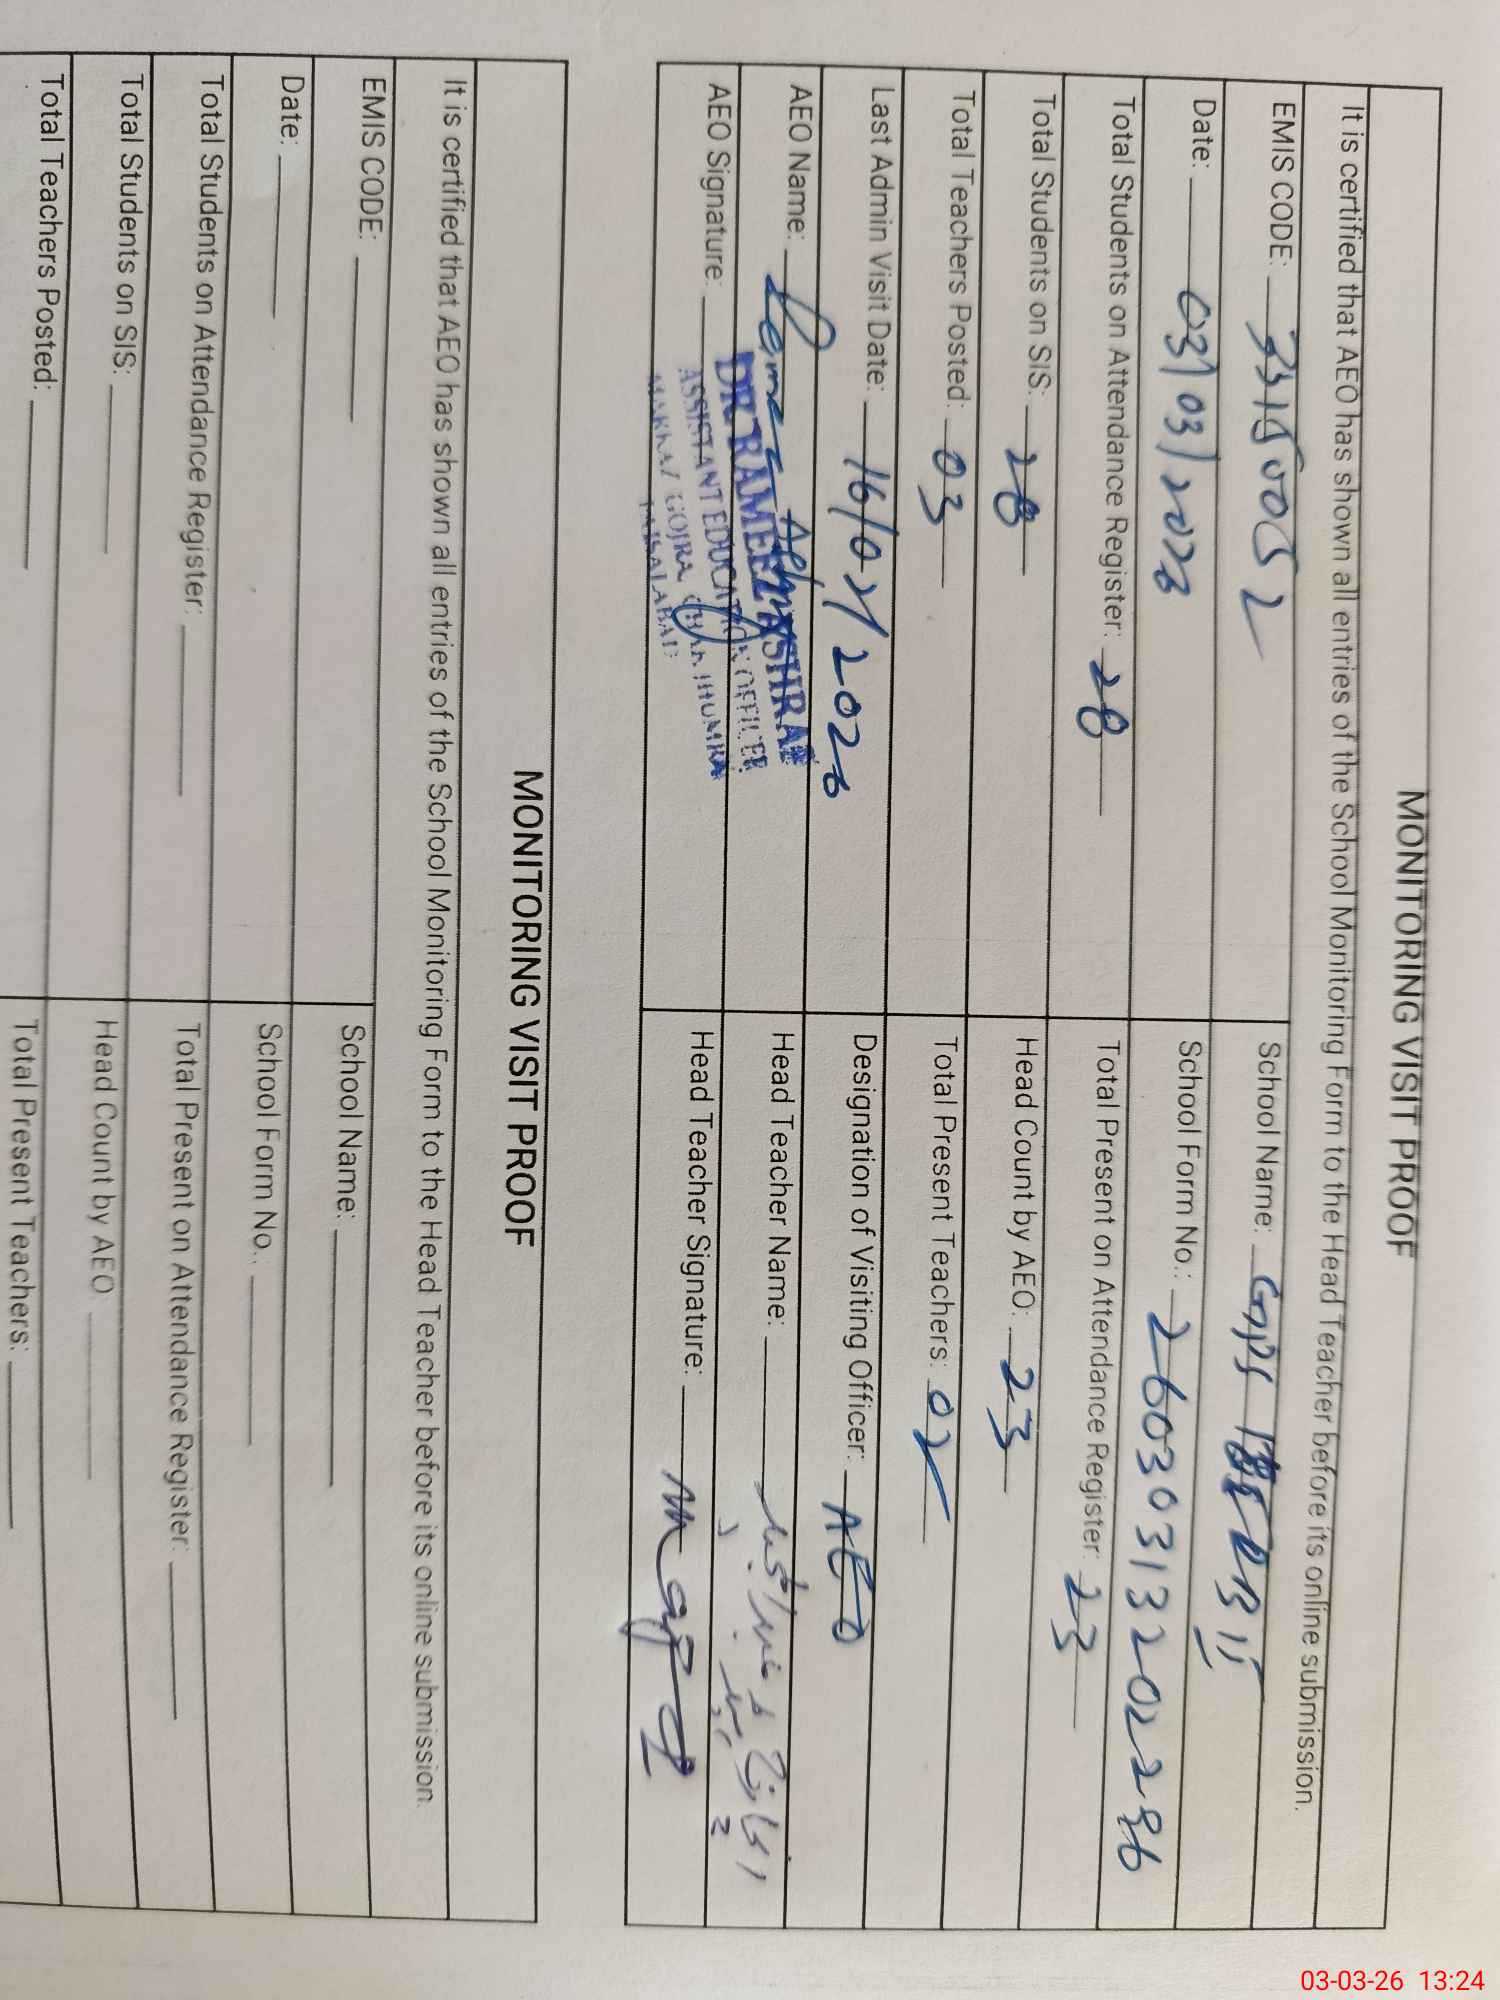 MONITORING VISIT PROOF
It is certified that AEO has shown all entries of the School Monitoring Form to the Head Teacher before its online submission.
EMIS CODE: 33150052
School Name: GPS
Date: 03/03/2026
School Form No.: 26030313202286
Total Students on Attendance Register: 28
Total Present on Attendance Register: 23
Total Students on SIS: 28
Head Count by AEO: 23
Total Teachers Posted: 03
Total Present Teachers: 02
Last Admin Visit Date: 16/02/2026
Designation of Visiting Officer: AEO
AEO Name:
Head Teacher Name:
AEO Signature:
Head Teacher Signature:
DR RAMEEZ
ASSISTANT EDUCATION OFFICER
GOJRA, CHAK JHUMRA
FAISALABAD
MONITORING VISIT PROOF
It is certified that AEO has shown all entries of the School Monitoring Form to the Head Teacher before its online submission.
EMIS CODE:
School Name:
Date:
School Form No.:
Total Students on Attendance Register:
Total Present on Attendance Register:
Total Students on SIS:
Head Count by AEO:
Total Teachers Posted:
Total Present Teachers:
03-03-26 13:24